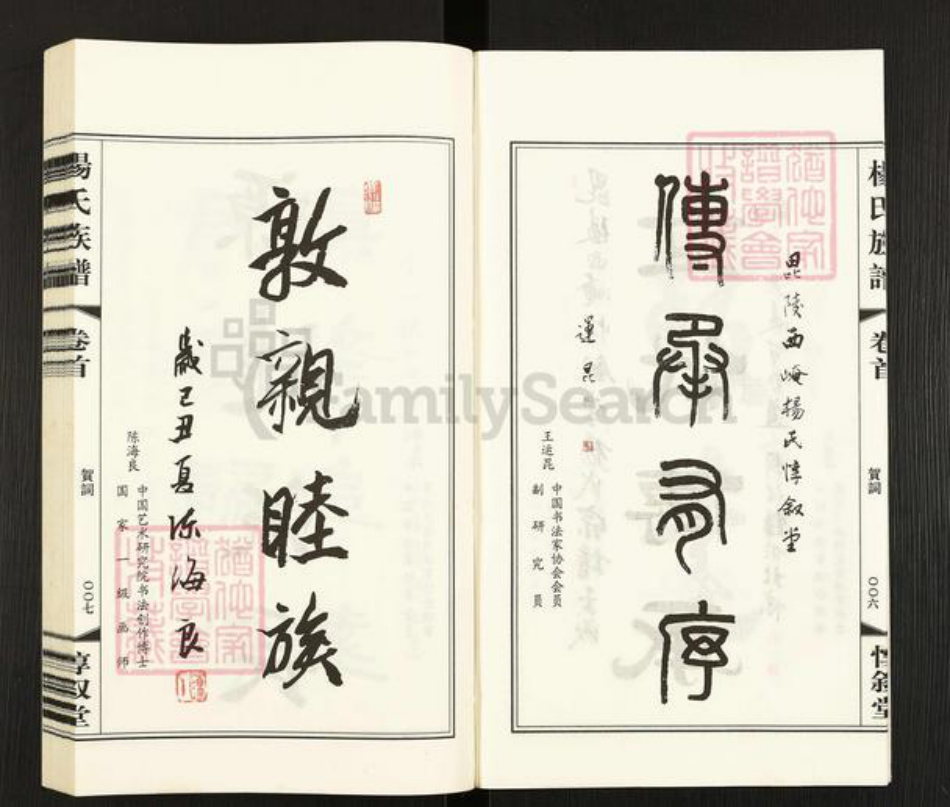 楊氏族譜
卷首
賀詞
〇〇六
惇敘堂
毘陵西崦楊氏惇敘堂
傳承有序
運昆
王运昆
中国书法家协会会员
副研究员
敦親睦族
歲己丑夏陈海良
陈海良
中国艺术研究院书法创作博士
国家一级画师
楊氏族譜
卷首
賀詞
〇〇七
惇叙堂
FamilySearch